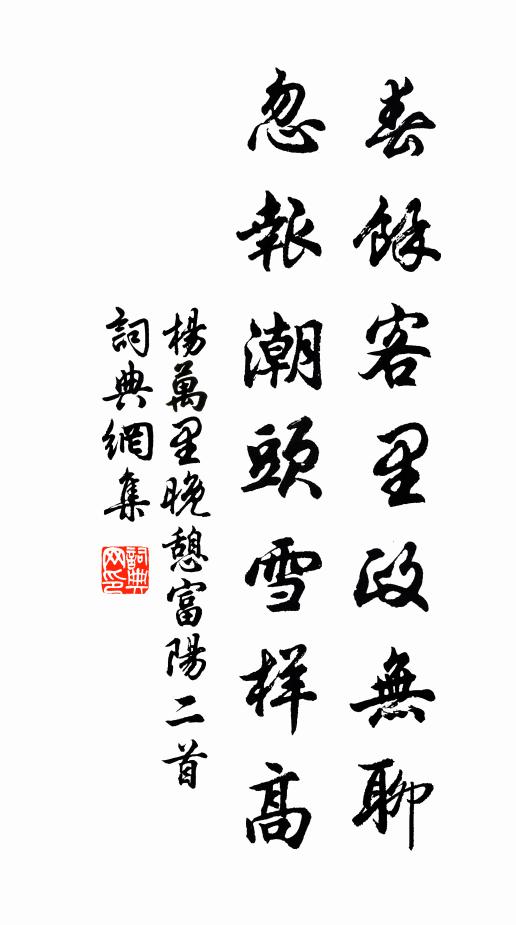 春餘客里政無聊
忽報潮頭雪样高
楊萬里晚憩富陽二首
詞典網集
詞典网印